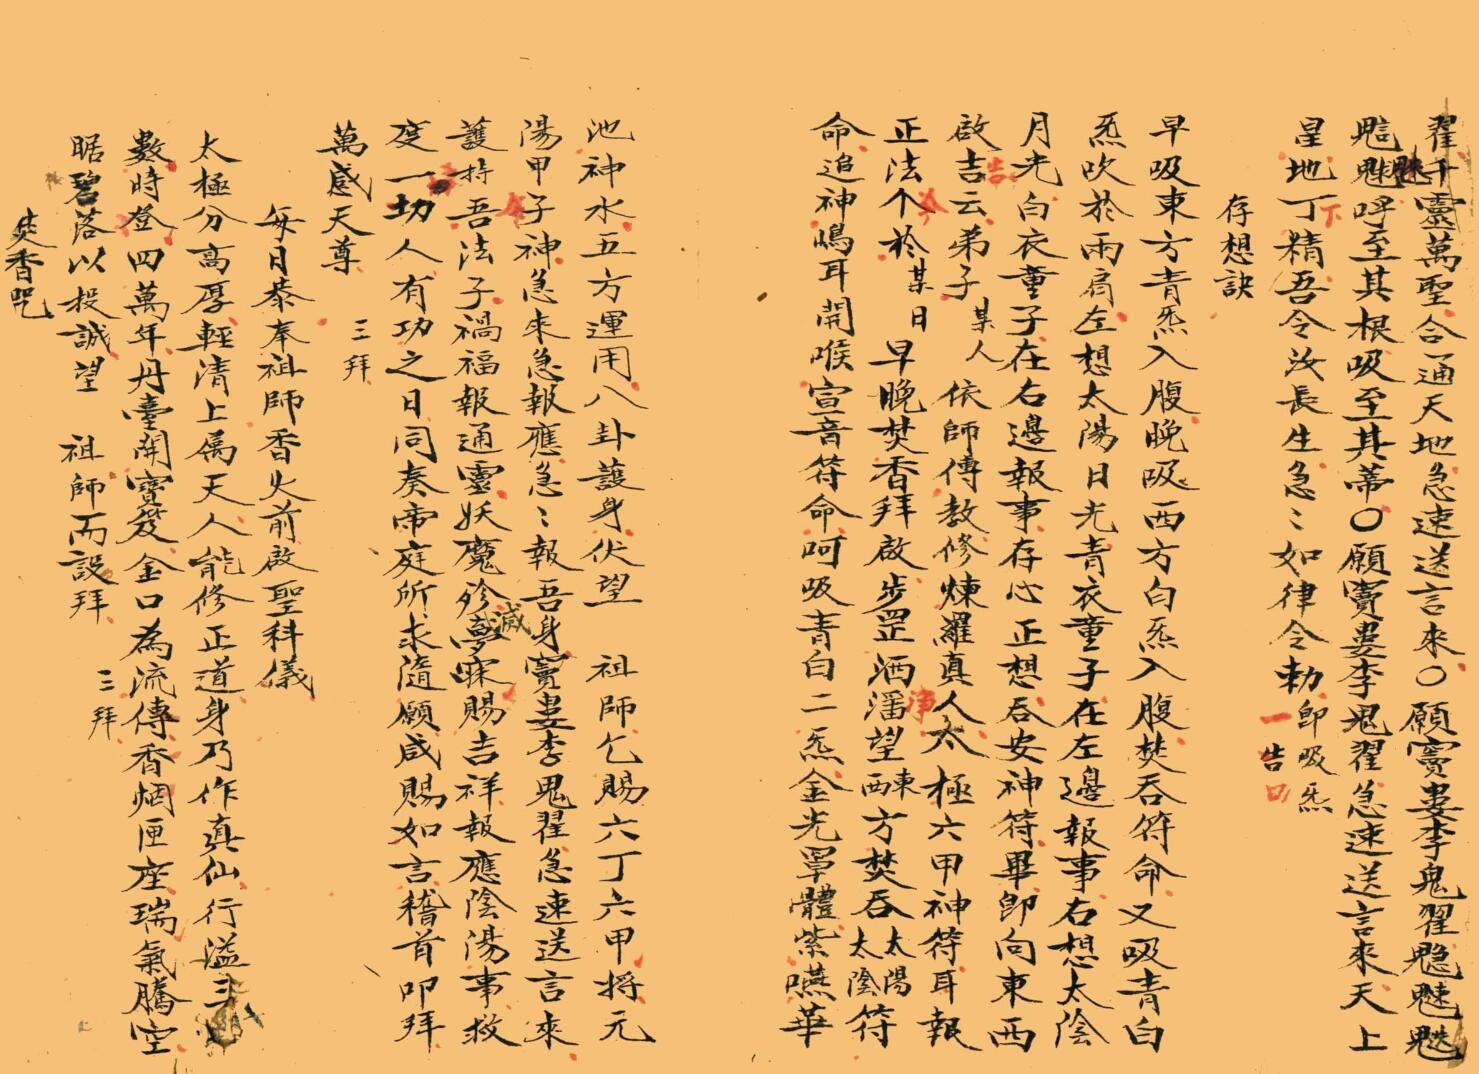 翟千靈萬聖合通天地急速送言來〇願竇婁李鬼翟魒魓魀
魁呼至其根吸至其蒂〇願竇婁李鬼翟急速送言來天上
皇地下丁精吾令汝長生急〻如律令勅 卽吸炁
一告口
存想訣
早吸東方青炁入腹晚吸西方白炁入腹焚吞符命又吸青白
炁吹於兩肩左想太陽日光青衣童子在左邊報事右想太陰
月光白衣童子在右邊報事存心正想吞安神符畢卽向東西
啟告云弟子某人 依師傳教修煉羅真人太極六甲神符耳報
正法今於某日 早晚焚香拜啟步罡洒淨望東西方焚吞太陽太陰符
命追神鳴耳開喉宣音符命呵吸青白二炁金光罩體紫嚥華
池神水五方運用八卦護身伏望 祖師乞賜六丁六甲將元
湯甲子神急來急報應急〻報吾身竇婁李鬼翟急速送言來
護持吾法子禍福報通靈妖魔殄滅夢寐賜吉祥報應陰湯事救
度一切人有功之日同奏帝庭所求隨願咸賜如言稽首叩拜
萬感天尊 三拜
每日恭奉祖師香火前啟聖科儀
太極分高厚輕清上属天人能修正道身乃作真仙行溢三
數時登四萬年丹臺開寶笈金口為流傳香烟匝座瑞氣騰空
晤碧落以投誠望 祖師而設拜 三拜
焚香咒